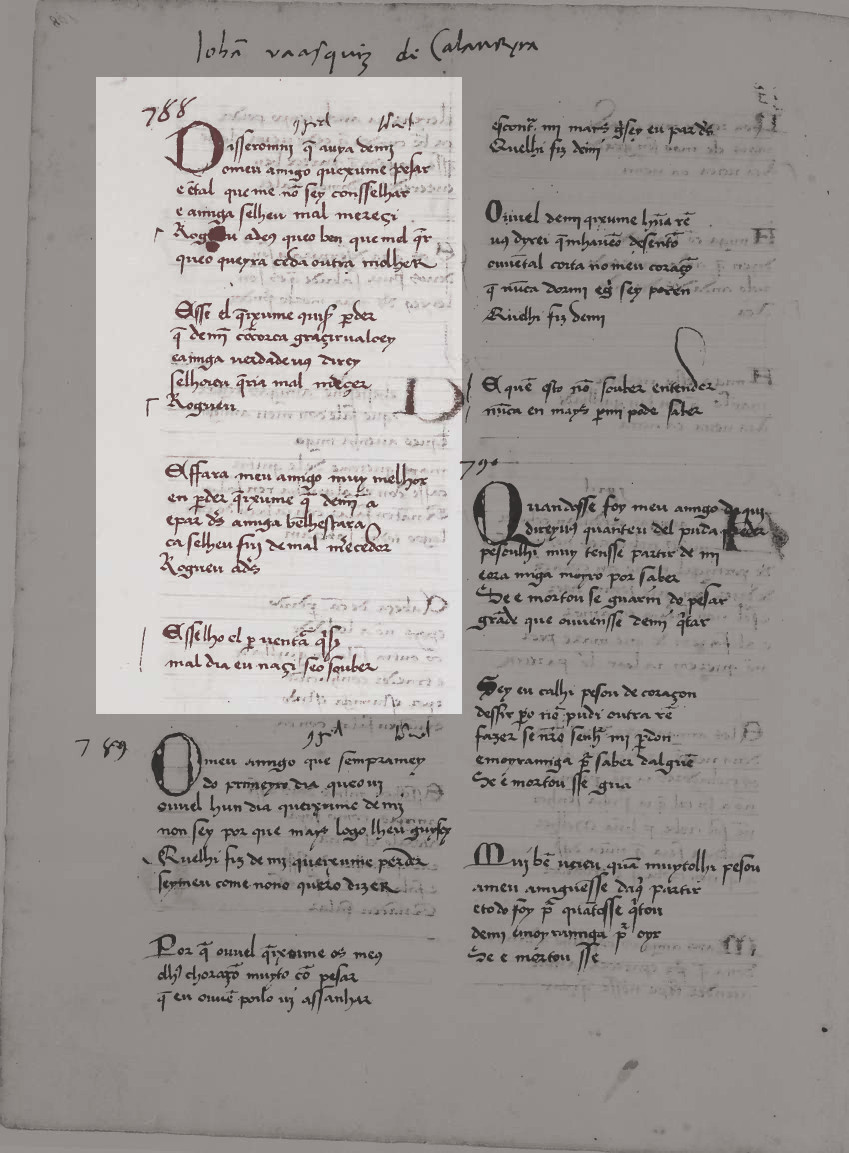 Iohã vaasquiz de Calaveyra
788
Disseromni q̄ auya demj
omeu amigo queyxume pesar
e ẽtal que me nõ sey consselhar
e amiga selheu mal mereçi
Rogueu adeus queo ben que mel q̄r
queo queyra cedã outra molher
Esse el q̄ixume quis p̄der
q̄ demj̄
eamiga uerdadeus direy
selho eu q̄ria mal
Rogueu
Essara meu amigo muy melhor
en p̄der q̄ixume q̄ demj̄ a
epar ds̄ amiga bẽlhestara
ca selheu fuy de mal m̄ecedor
Rogueu ads̄
Esselho el p uentã
mal dia eu naçi seo souber
789
Omeu amigo que sempramey
do primeyro dia queo ui
ouuel hun dia queixume de mj
non sey por que mays logo lheu guysey
Quelhi fiz de mi queixume perder
seymeu come nono quero dizer
Por q̄ ouuel q̄ixume os meus
olh9 choragõ muyto cõ pesar
q̄ eu ouuẽ poilo ui assanhar
escont mi mays gsey eu par ds̄
Quelhi fiz demi
Ouuel demi qixume hũa rē
u9 dyrei
ouuẽtal coita no meu coraçõ
q̄ nũca dormi sey poren
Quelhi fiz demi
E quē sto nõ souber entender
nũca en mays p mi pode saber
790
Quandosse foy meu amigo daqui
direyu9 quãteu del puda
pesoulhi muy tensse partir de mi
eora miga moyro por saber
Se e mortou se guarin do pesar
grãde que ouuensse demi qitar
Sey eu calhi pesou de coraçon
dessir po nõ pudi outra rē
fazer se nr̄o senh̄ mi p̄don
emoyramiga p̄ saber dalguē
Se e mortou sse gua
Mui bē uireu quã muytolhi pesou
ameu amiguesse daq̄ partir
etodo foy p̄ quãtosse q̄tou
demi emoyramiga p̄ oyr
Se e mortou sse